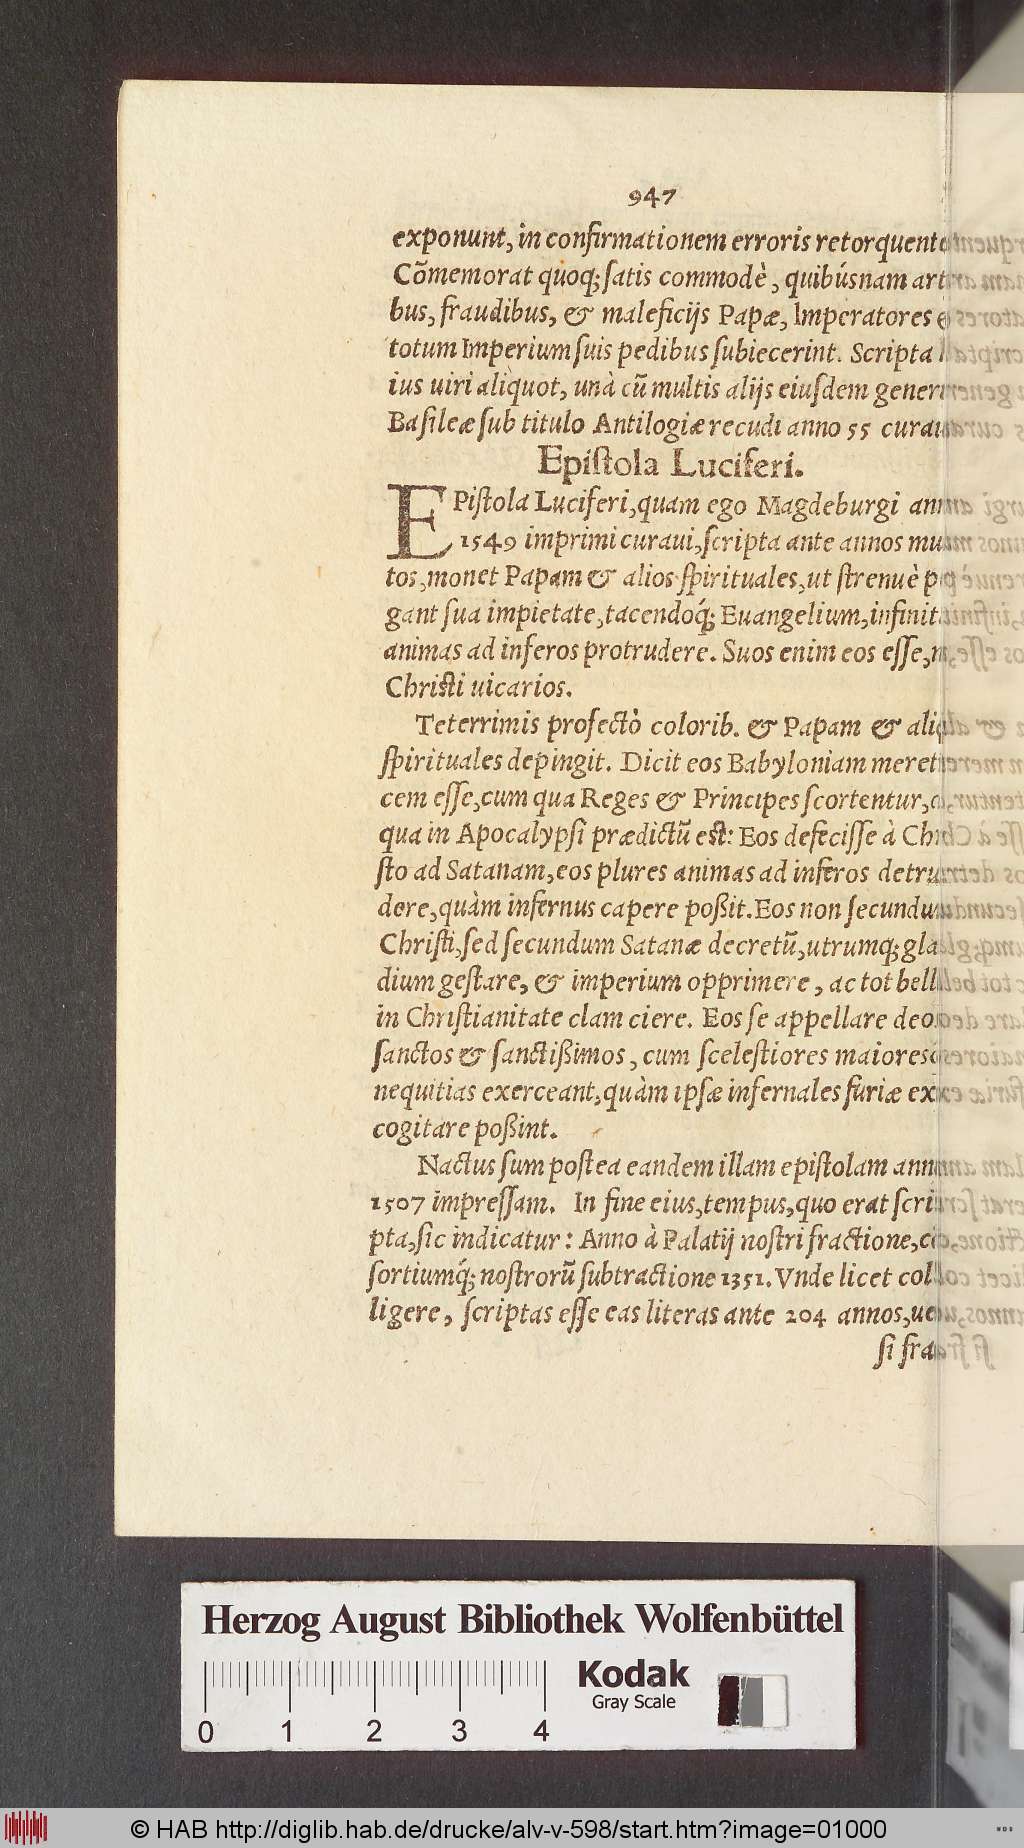 947
exponunt, in confirmationem erroris retorquent
Cõmemorat quoq; ſatis commodè, quibúsnam art
bus, fraudibus, & maleficijs Papæ, Imperatores
totum Imperium ſuis pedibus ſubiecerint. Scripta
ius uiri aliquot, unà cũ multis alijs eiuſdem gener
Baſileæ ſub titulo Antilogiæ recudi anno 55 curau
Epiſtola Luciferi.
EPiſtola Luciferi, quam ego Magdeburgi ann
1549 imprimi curaui, ſcripta ante annos mul
tos, monet Papam & alios ſpirituales, ut ſtrenuè p
gant ſua impietate, tacendoq́; Euangelium, infinit
animas ad inferos protrudere. Suos enim eos eſſe, n
Chriſti uicarios.
Teterrimis profectò colorib. & Papam & aliq
ſpirituales depingit. Dicit eos Babyloniam meret
cem eſſe, cum qua Reges & Principes ſcortentur, d
qua in Apocalypſi prædictũ eſt: Eos defeciſſe à Chri
ſto ad Satanam, eos plures animas ad inferos detru
dere, quàm infernus capere poßit. Eos non ſecundum
Chriſti, ſed ſecundum Satanæ decretũ, utrumq; gla
dium geſtare, & imperium opprimere, ac tot bell
in Chriſtianitate clam ciere. Eos ſe appellare deos
ſanctos & ſanctißimos, cum ſceleſtiores maioresq́
nequitias exerceant, quàm ipſæ infernales furiæ ex
cogitare poßint.
Nactus ſum poſtea eandem illam epiſtolam anno
1507 impreſſam. In fine eius, tempus, quo erat ſcri
pta, ſic indicatur: Anno à Palatij noſtri fractione, cō
ſortiumq́; noſtrorũ ſubtractione 1351. Vnde licet col
ligere, ſcriptas eſſe eas literas ante 204 annos, ue
ſi fra
Herzog August Bibliothek Wolfenbüttel
Kodak
Gray Scale
0 1 2 3 4
© HAB http://diglib.hab.de/drucke/alv-v-598/start.htm?image=01000